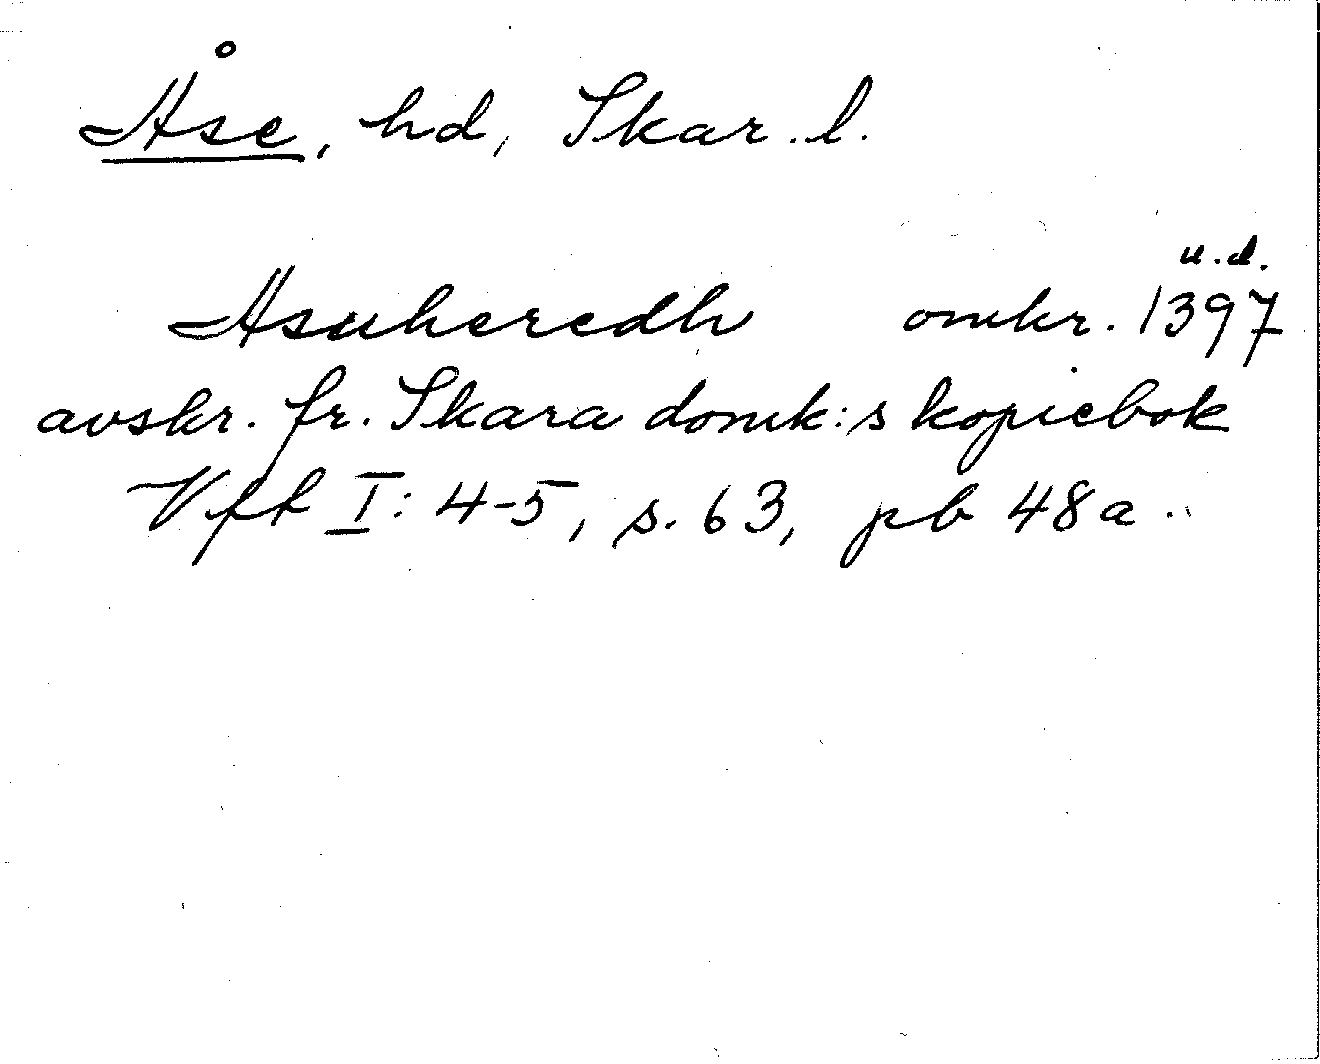 Åse, hd, Skar. l.
u.d.
Asuheredh omkr. 1397
avskr. fr. Skara domk:s kopiebok
Vft I: 4-5, s. 63, pb 48a.